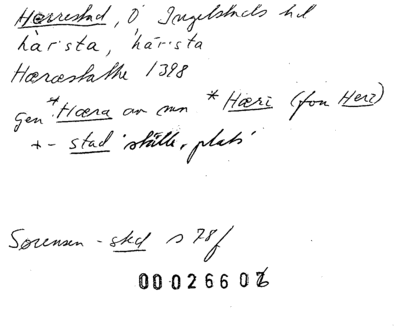 Herrestad, Ö Ingelstads hd
hàrista, hårista
Haræstathe 1398
gen *Hæra av mn *Hæri (fon Heri)
+ - stad 'ställe, plats'
Sørensen - sted s 78 f
00026607